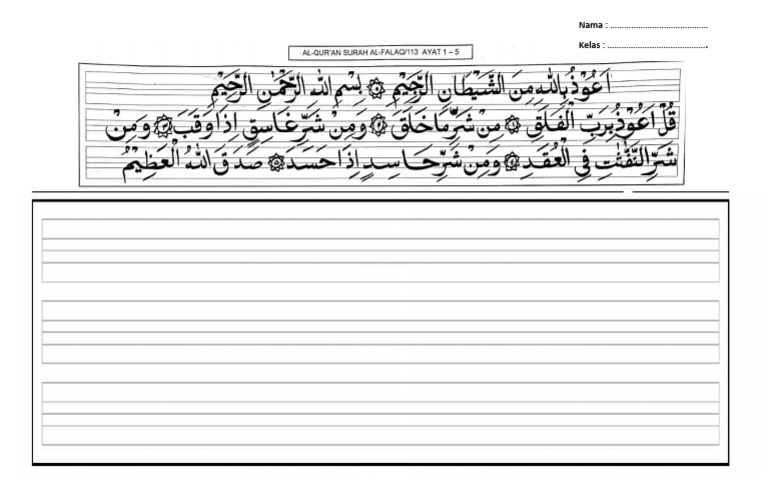 Nama : ..........................................
Kelas : ...........................................
AL-QUR'AN SURAH AL-FALAQ/113 AYAT 1 – 5
اَعُوْذُ بِاللّٰهِ مِنَ الشَّيْطَانِ الرَّجِيْمِ ۞ بِسْمِ اللّٰهِ الرَّحْمٰنِ الرَّحِيْمِ
قُلْ اَعُوْذُ بِرَبِّ الْفَلَقِ ۝١ مِنْ شَرِّ مَا خَلَقَ ۝٢ وَمِنْ شَرِّ غَاسِقٍ اِذَا وَقَبَ ۝٣ وَمِنْ
شَرِّ النَّفّٰثٰتِ فِى الْعُقَدِ ۝٤ وَمِنْ شَرِّ حَاسِدٍ اِذَا حَسَدَ ۝٥ صَدَقَ اللّٰهُ الْعَظِيْمُ